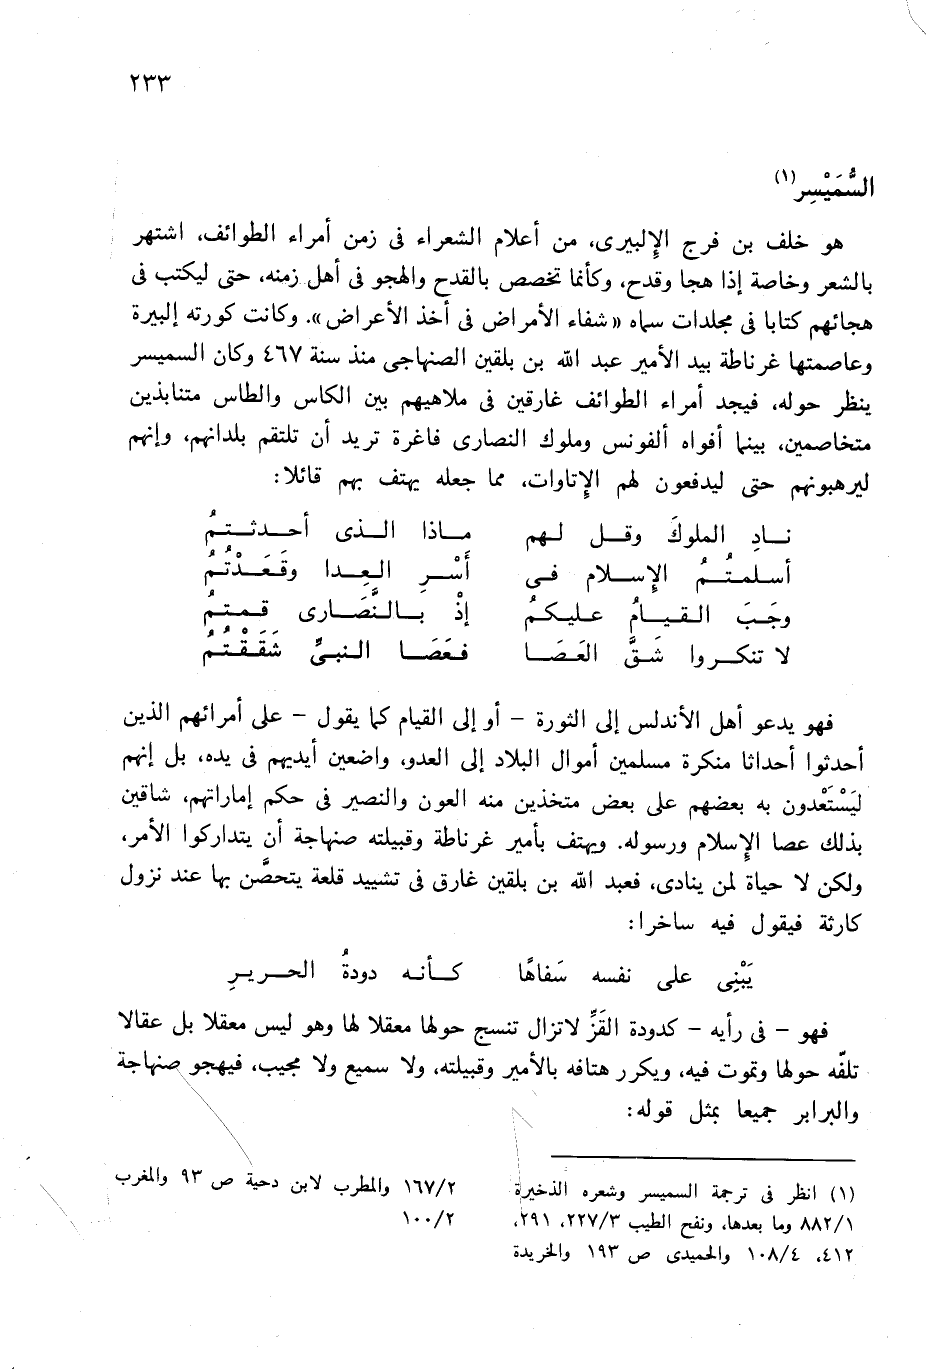 ٢٣٣
السُّمَيْسِر(١)
هو خلف بن فرج الإلبيرى، من أعلام الشعراء فى زمن أمراء الطوائف، اشتهر
بالشعر وخاصة إذا هجا وقدح، وكأنما تخصص بالقدح والهجو فى أهل زمنه، حتى ليكتب فى
هجائهم كتابا فى مجلدات سماه «شفاء الأمراض فى أخذ الأعراض». وكانت كورته إلبيرة
وعاصمتها غرناطة بيد الأمير عبد الله بن بلقين الصنهاجى منذ سنة ٤٦٧ وكان السميسر
ينظر حوله، فيجد أمراء الطوائف غارقين فى ملاهيهم بين الكاس والطاس متنابذين
متخاصمين، بينما أفواه ألفونس وملوك النصارى فاغرة تريد أن تلتقم بلدانهم، وإنهم
ليرهبونهم حتى ليدفعون لهم الإتاوات، مما جعله يهتف بهم قائلا:
نـادِ الملوكَ وقـل لـهم مـاذا الـذى أحـدثـتـمُ
أسلمتُـمُ الإسـلام فـى أَسْـرِ الـعِـدا وقَـعَـدْتُـمُ
وجَـبَ الـقـيـامُ عليكـمُ إذْ بـالـنَّـصَـارى قـمتـمُ
لا تنكـروا شَـقَّ العَـصَـا فعَـصَـا الـنبـىِّ شَقَـقْـتُـمُ
فهو يدعو أهل الأندلس إلى الثورة – أو إلى القيام كما يقول – على أمرائهم الذين
أحدثوا أحداثا منكرة مسلمين أموال البلاد إلى العدو، واضعين أيديهم فى يده، بل إنهم
ليَسْتَعْدون به بعضهم على بعض متخذين منه العون والنصير فى حكم إماراتهم، شاقين
بذلك عصا الإسلام ورسوله. ويهتف بأمير غرناطة وقبيلته صنهاجة أن يتداركوا الأمر،
ولكن لا حياة لمن ينادى، فعبد الله بن بلقين غارق فى تشييد قلعة يتحصَّن بها عند نزول
كارثة فيقول فيه ساخرا:
يَبْنِى على نفسه سَفاهًا كـأنـه دودةُ الحـريـرِ
فهو – فى رأيه – كدودة القَزِّ لاتزال تنسج حولها معقلا لها وهو ليس معقلا بل عقالا
تلفّه حولها وتموت فيه، ويكرر هتافه بالأمير وقبيلته، ولا سميع ولا مجيب، فيهجو صنهاجة
والبرابر جميعا بمثل قوله:
(١) انظر فى ترجمة السميسر وشعره الذخيرة
٨٨٢/١ وما بعدها، ونفح الطيب ٢٢٧/٣، ٢٩١،
٤١٢، ١٠٨/٤ والحميدى ص ١٩٣ والخريدة
١٦٧/٢ والمطرب لابن دحية ص ٩٣ والمغرب
١٠٠/٢